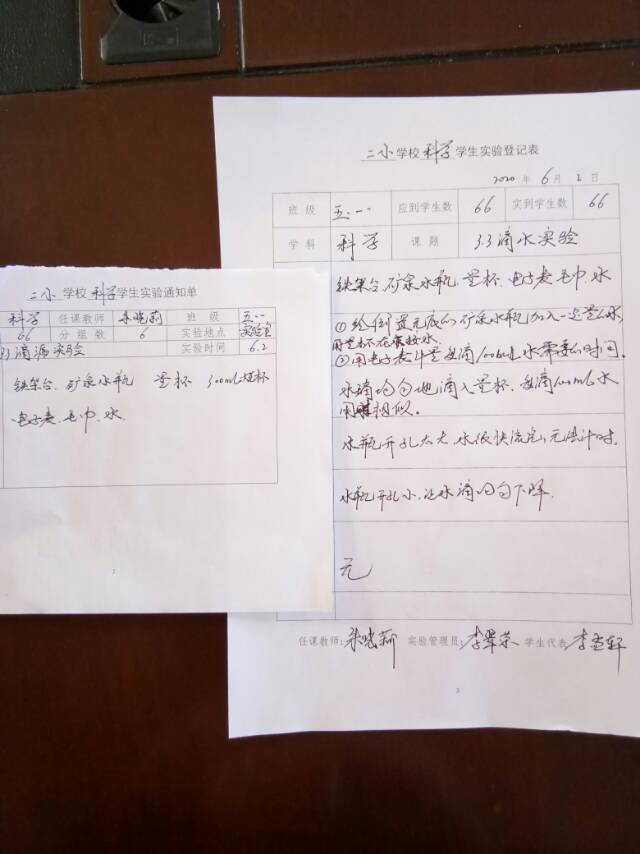 二小学校科学学生实验通知单
科学 任课教师 班级 五.一
66 分组数 6 实验地点 实验室
3.3滴漏实验 实验时间 6.2
铁架台、矿泉水瓶 量杯 300mL烧杯
电子表、毛巾、水.
二小学校科学学生实验登记表
2020年6月2日
班级 五.一 应到学生数 66 实到学生数 66
学科 科学 课题 3.3滴水实验
铁架台.矿泉水瓶.量杯.电子表.毛巾.水
①给倒置无底的矿泉水瓶加入一定量的水
用量杯在下接水.
②用电子表计量每滴100mL水需要的时间.
水滴均匀地滴入量杯.每滴100mL水
用时相似.
水瓶开孔太大.水很快流完,无法计时.
水瓶开孔小.让水滴均匀下降.
无
任课教师: 实验管理员: 李翠荣 学生代表